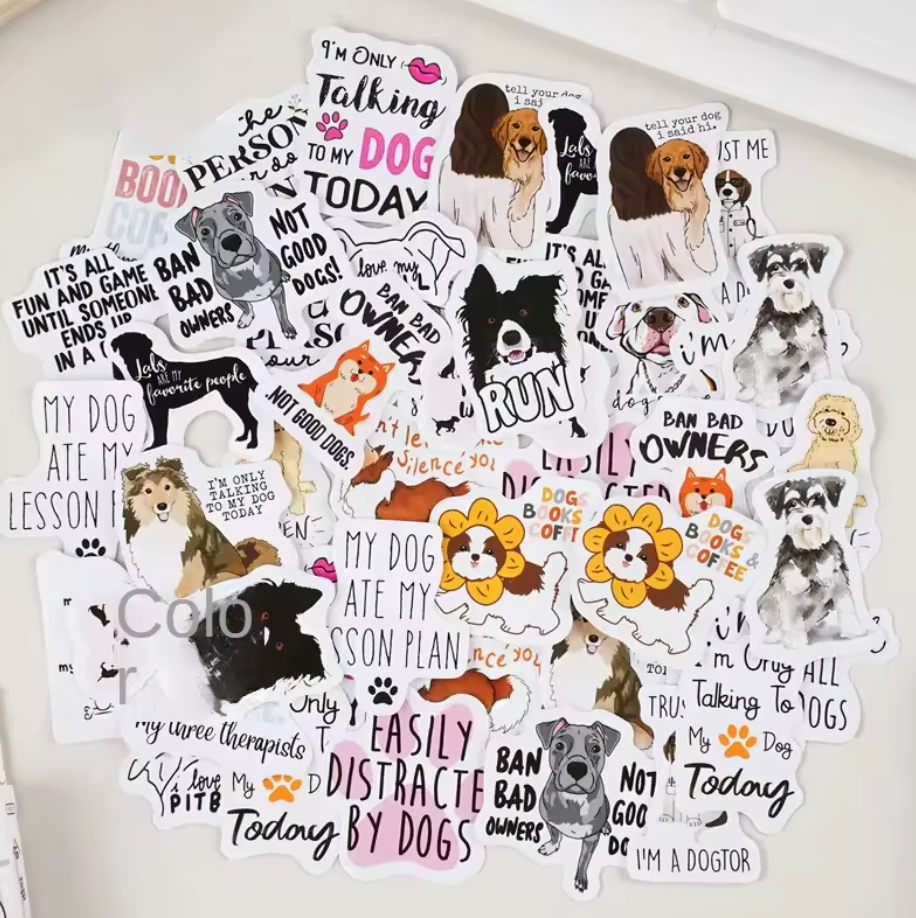 I'M ONLY
Talking
TO MY DOG
TODAY
tell your dog
i sai
Labs
ARE
favo
tell your dog
i said hi.
UST ME
he
PERSON
r do
BOO
COF
BAN
BAD
OWNERS
NOT
GOOD
DOGS!
IT'S ALL
FUN AND GAME
UNTIL SOMEONE
ENDS UP
IN A
love my
BAN BAD
OWNER
NOT GOOD DOGS.
IT'S
RUN
i'm
dog
Labs
ARE MY
favorite people
your
MY DOG
ATE MY
LESSON P
BAN BAD
OWNERS
EASILY
I'M ONLY
TALKING
TO MY DOG
TODAY
n't le
Silence you
DOGS
BOOKS
COFF
DOGS
BOOKS &
COFFEE
MY DOG
ATE MY
SSON PLAN
Colo
r
nce you
TRUS
I'm Only
Talking To
My Dog
Today
ALL
DOGS
My three therapists
Only
T
i love
PITB
My D
Today
EASILY
DISTRACTE
BY DOGS
BAN
BAD
OWNERS
NOT
GOO
DO
I'M A DOGTOR